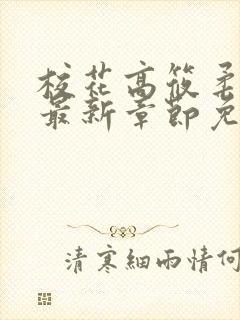 校花高筱柔
最新章節免
清寒細雨情何